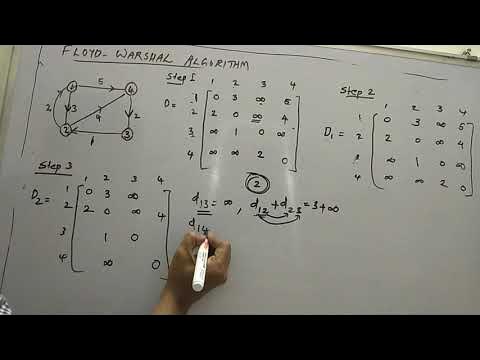 FLOYD-WARSHAL ALGORITHM
1 5 4
2 3 4 2
2 1 3
Step 1
1 2 3 4
D= 1 0 3 ∞ 5
2 2 0 ∞ 4
3 ∞ 1 0 ∞
4 ∞ ∞ 2 0
Step 2
1 2 3 4
1 0 3 ∞ 5
D1 = 2 2 0 ∞ 4
3 ∞ 1 0 ∞
4 ∞ ∞ 2 0
Step 3
1 2 3 4
D2 = 1 0 3 ∞
2 2 0 ∞ 4
3 1 0
4 ∞ 0
2
d13 = ∞ , d12 + d23 = 3+∞
d14